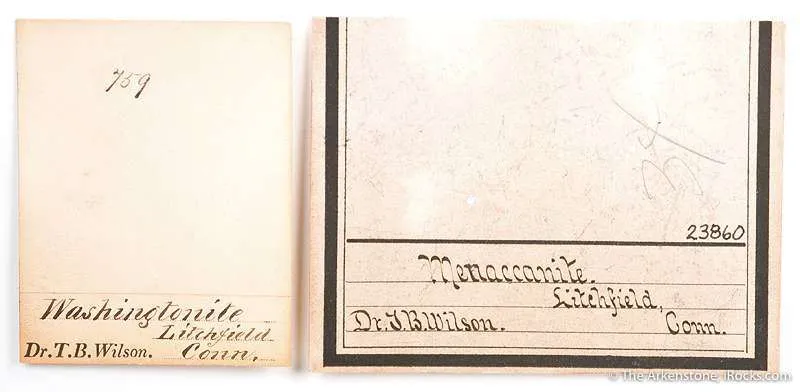 759
Washingtonite
Litchfield
Dr. T. B. Wilson. Conn.
23860
Menaccanite.
Litchfield,
Dr. T. B. Wilson. Conn.
© The Arkenstone, iRocks.com